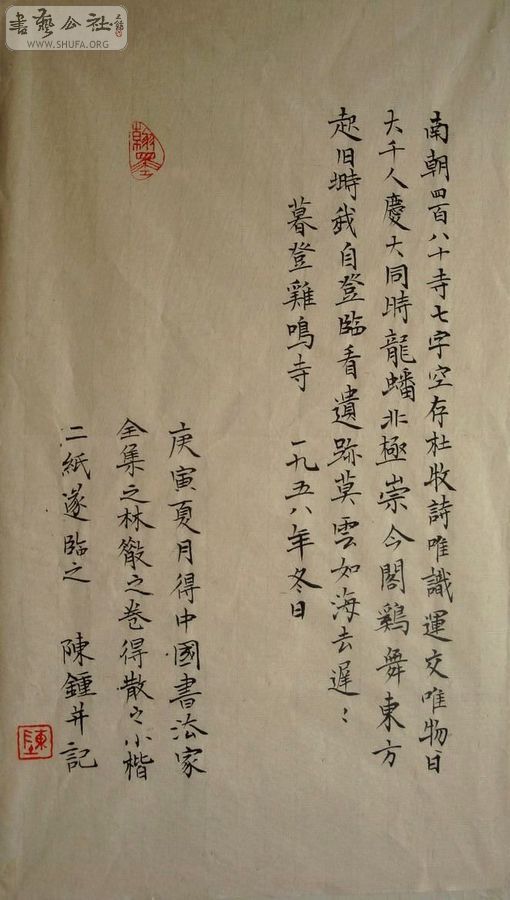 書藝公社
WWW.SHUFA.ORG
翰墨
南朝四百八十寺七字空存杜牧詩唯識運交唯物日
大千人慶大同時龍蟠北極崇今閣鷄舞東方
起旧塒我自登臨看遺跡莫雲如海去遲〻
暮登雞鳴寺 一九五八年冬日
庚寅夏月得中國書法家
全集之林散之卷得散之小楷
二紙遂臨之 陳鍾并記
陳